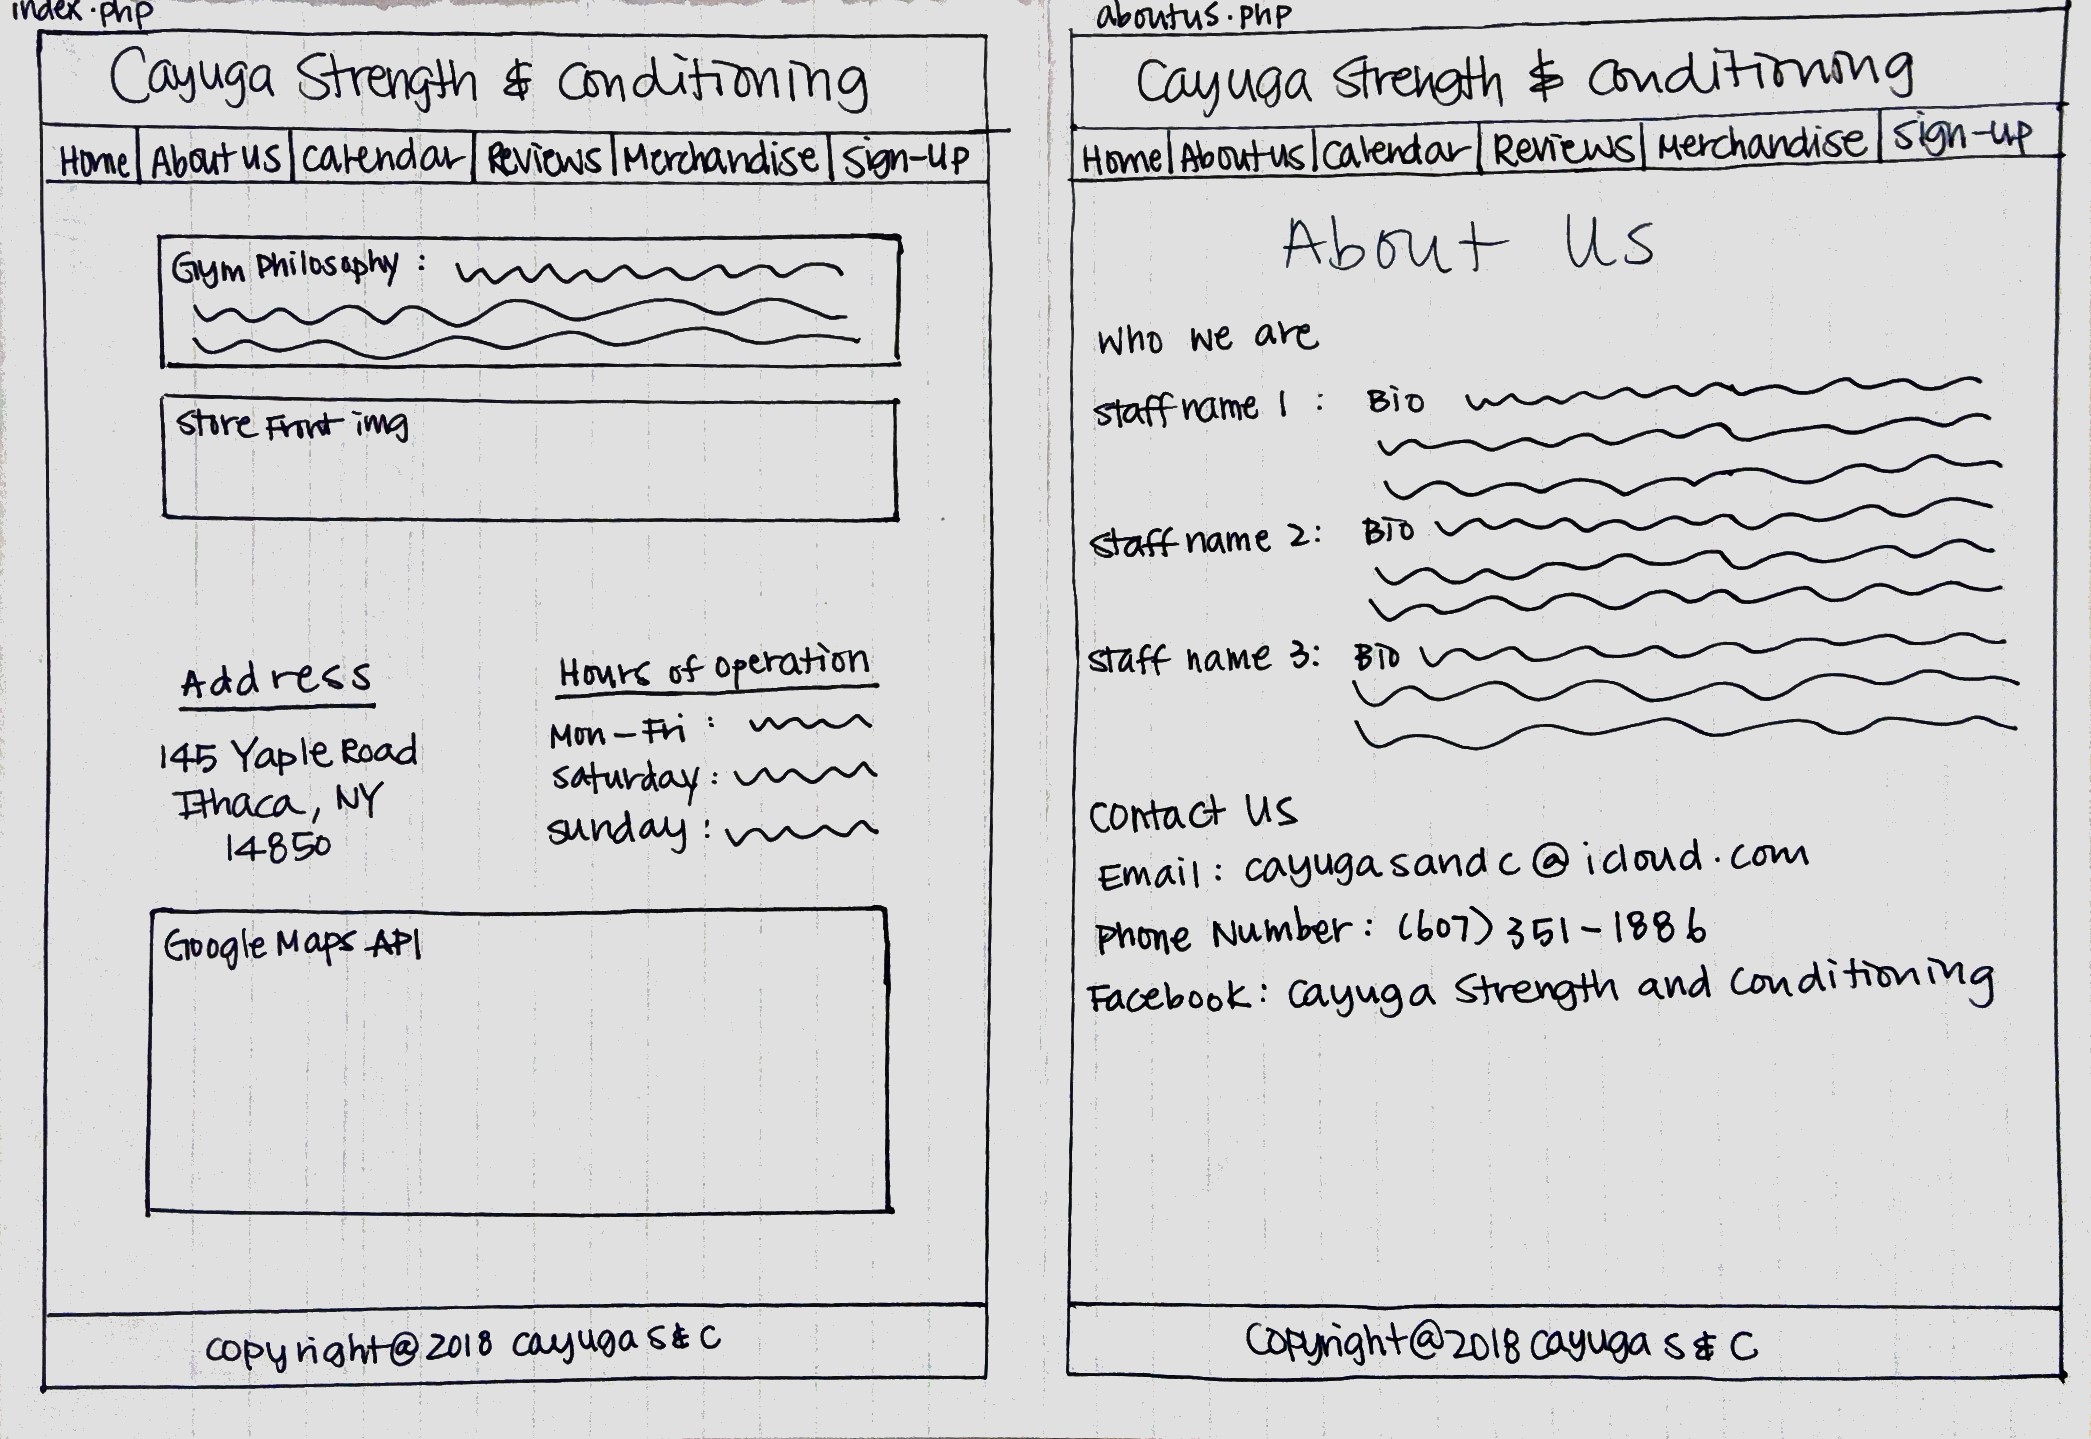 index.php
Cayuga Strength & Conditioning
Home About us Calendar Reviews Merchandise Sign-up
Gym Philosophy :
Store Front img
Address
145 Yaple Road
Ithaca, NY
14850
Hours of operation
Mon-Fri :
Saturday :
Sunday :
Google Maps API
copyright@2018 Cayuga S & C
aboutus.php
Cayuga Strength & Conditioning
Home About us Calendar Reviews Merchandise Sign-up
About Us
Who we are
Staff name 1 : Bio
Staff name 2: Bio
Staff name 3: Bio
Contact Us
Email: cayugasandc@icloud.com
Phone Number: (607) 351-1886
Facebook: Cayuga Strength and Conditioning
Copyright@2018 Cayuga S & C